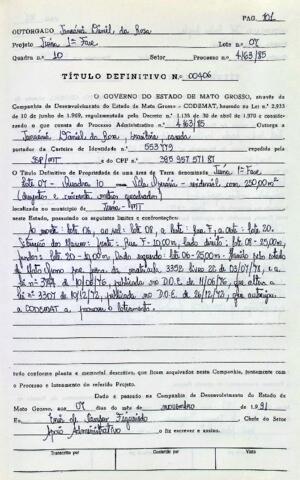 PAG. 101
OUTORGADO Janaína Daniel da Rosa
Projeto Juína 1ª Fase Lote nº 07
Quadra nº 10 Setor Processo nº 4163/85
TÍTULO DEFINITIVO Nº 00406
O GOVERNO DO ESTADO DE MATO GROSSO, através da
Companhia de Desenvolvimento do Estado de Mato Grosso - CODEMAT, baseado na Lei nº 2.933
de 10 de junho de 1969, regulamentada pelo Decreto nº 1.135 de 30 de abril de 1970 e considerando
o que consta do Processo Administrativo nº 4163/85 Outorga a
Daniel da Rosa, brasileira, casada
portador da Carteira de Identidade nº 553479 expedida pela
SSP/MT e do CPF nº 385957571 87
O Título Definitivo de Propriedade de uma área de Terra denominada Juína 1ª Fase
Lote 07 - Quadra 10 residencial com 250,00m²
(duzentos e cinquenta metros quadrados)
localizada no município de Juína - MT
neste Estado, passando os seguintes limites e confrontações:
Ao norte: lote 06, ao sul: lote 08, a leste: Rua F, a oeste: lote 20.
frente: Rua F - 10,00m, lado direito: lote 08 - 25,00m,
fundos: lote 20 - 10,00m. lado esquerdo: lote 06 - 25,00m. pelo estado
de Mato Grosso por força da matrícula livro 22 de 03/07/78, e a
lei nº de 10/06/76, publicada no D.O.E. 11/06/76 que altera a
lei nº 3307 de 18/12/72, publicada no D.O.E. de 26/12/72, que autoriza
a CODEMAT a promover o loteamento.
tudo conforme planta e memorial descritivo, que ficam arquivados nesta Companhia, juntamente com
o Processo e loteamento do referido Projeto.
Dado e passado na Companhia de Desenvolvimento do Estado de
Mato Grosso, aos 07 dias do mês de novembro de 1991
Eu, Figueiredo Chefe do Setor
Apoio Administrativo o fiz escrever e assino.
Transcrito por Conferido por Visto